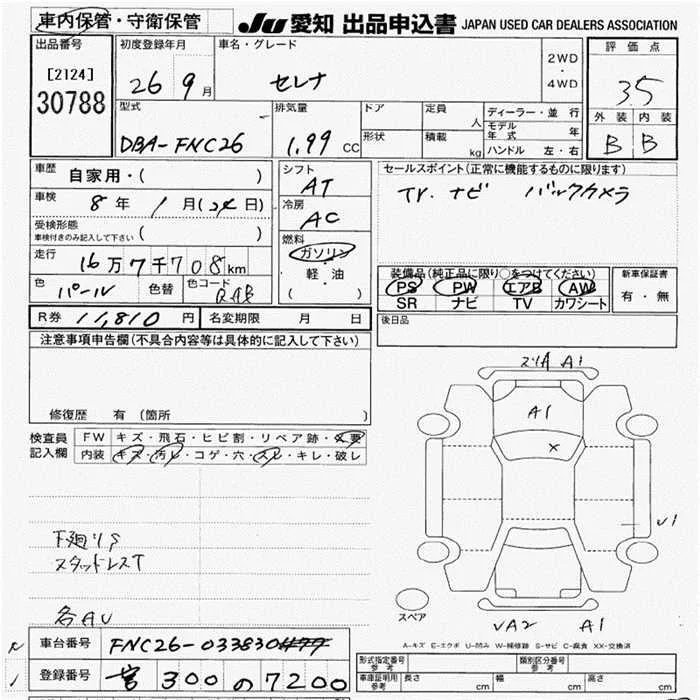 車内保管・守衛保管
JU 愛知 出品申込書 JAPAN USED CAR DEALERS ASSOCIATION
出品番号
[2124]
30788
初度登録年月
26 9月
車名・グレード
セレナ
2WD
・
4WD
評価点
3.5
外装 内装
B B
型式
DBA-FNC26
排気量
1.99 CC
ドア
形状
定員 人
積載 kg
ディーラー・並行
モデル年式 年
ハンドル 左・右
車歴 自家用・( )
車検 8年 1月(24日)
受検形態
車検付きのみ記入して下さい ( )
走行 16万7千708km
色 パール 色替 色コード QAB
シフト
AT
冷房
AC
燃料
ガソリン
・
軽・油
( )
セールスポイント(正常に機能するものに限ります)
TV. ナビ バックカメラ
装備品(純正品に限り○をつけてください)
PS PW エアB AW
SR ナビ TV カワシート
新車保証書
有・無
R券 11,810円 名変期限 月 日
後日品
注意事項申告欄(不具合内容等は具体的に記入して下さい)
修復歴 有(箇所 )
検査員記入欄
FW キズ・飛石・ヒビ割・リペア跡・×要
内装 キズ・汚レ・コゲ・穴・スレ・キレ・破レ
下廻りS
スタッドレスT
各AU
A1
A1
×
U1
UA2 A1
スペア
A-キズ E-エクボ U-凹み W-補修跡 S-サビ C-腐食 XX-交換済
車台番号 FNC26-033830
登録番号 300 の 7200
形式指定番号 参考
類別区分番号 参考
車庫証明用 参考 長さ cm 幅 cm 高さ cm